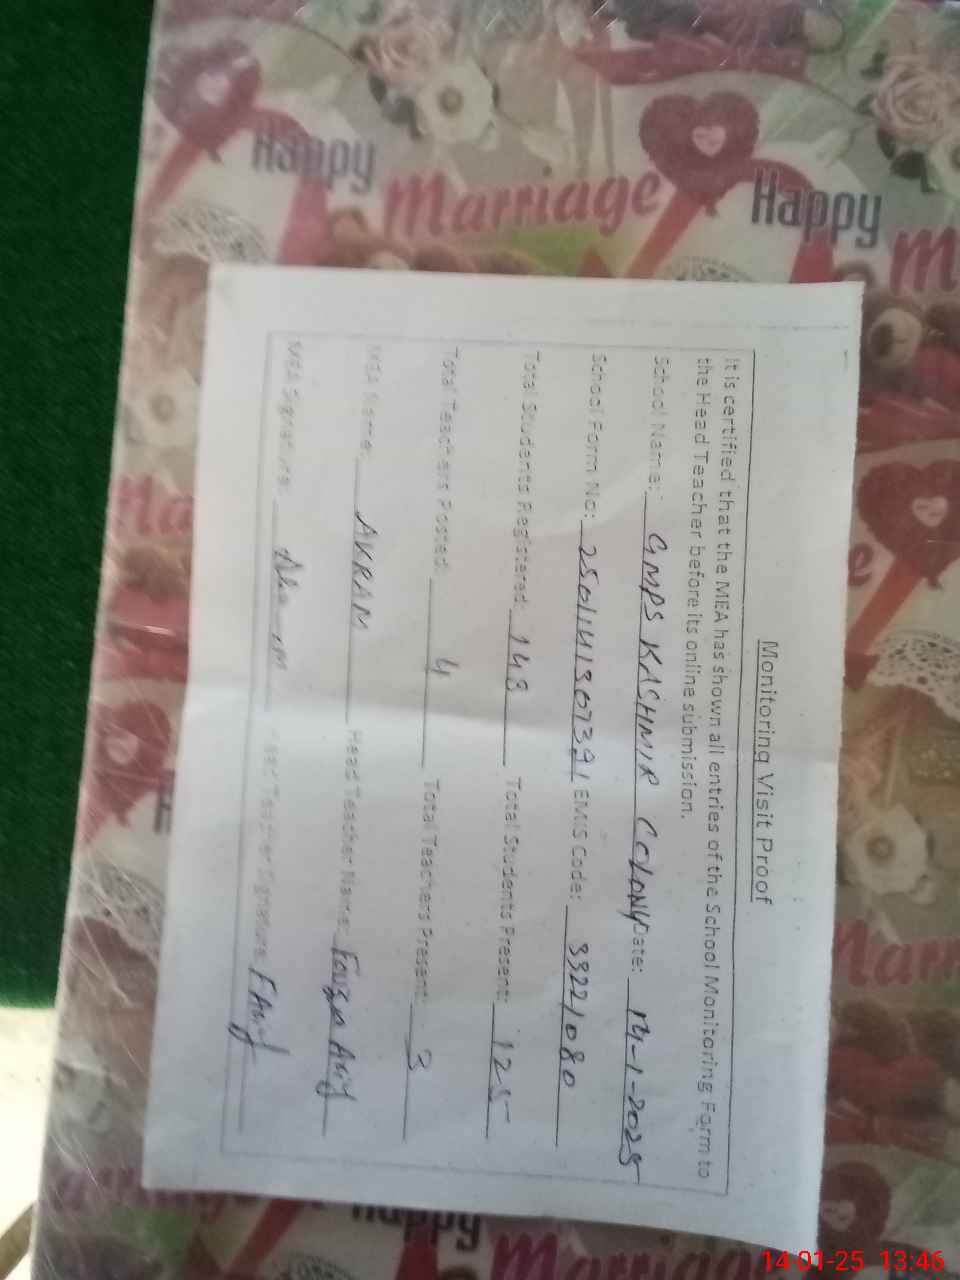 Happy Marriage Happy M
Monitoring Visit Proof
It is certified that the MEA has shown all entries of the School Monitoring Form to
the Head Teacher before its online submission.
School Name: GMPS KASHMIR COLONY Date: 14-1-2025
School Form No: EMIS Code:
Total Students Registered: 148 Total Students Present: 125
Total Teachers Posted: 4 Total Teachers Present: 3
MEA Name: AKRAM Head Teacher Name: Fouzia Arif
MEA Signature: Akram Head Teacher Signature: F Arif
Happy
Marriage
14-01-25 13:46